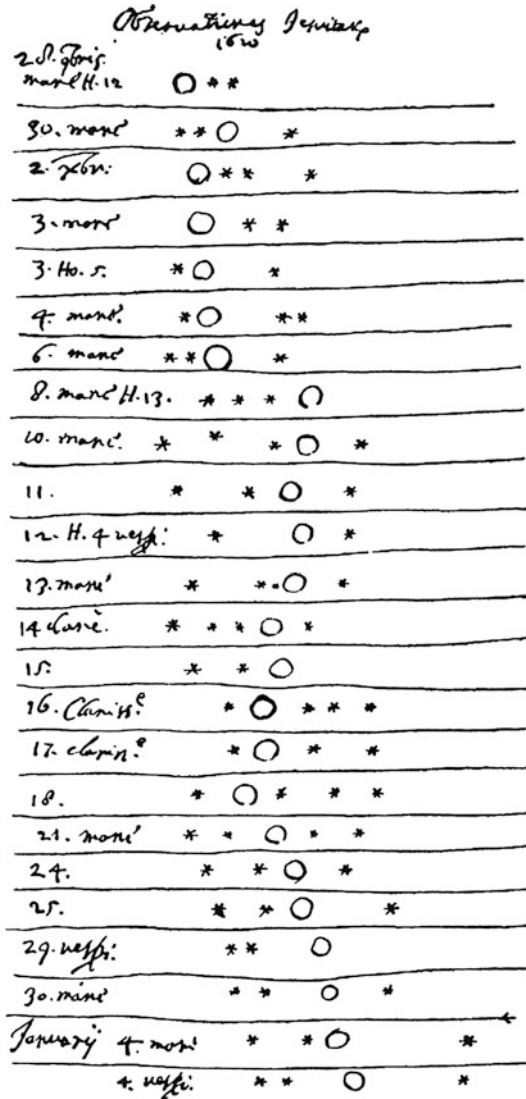 Observationes Jesuitarū
1610
2 S. 9bris.
mane H. 12
30. mane
2. Xbr:
3. mane
3. Ho. 5.
4. mane.
6. mane
8. mane H. 13.
10. mane.
11.
12. H. 4 vesp:
13. mane
14 Clare.
15.
16. Clariss.e
17. clariss.e
18.
21. mane
24.
25.
29. vesp:
30. mane
Januarij 4. mane
4. vesp: